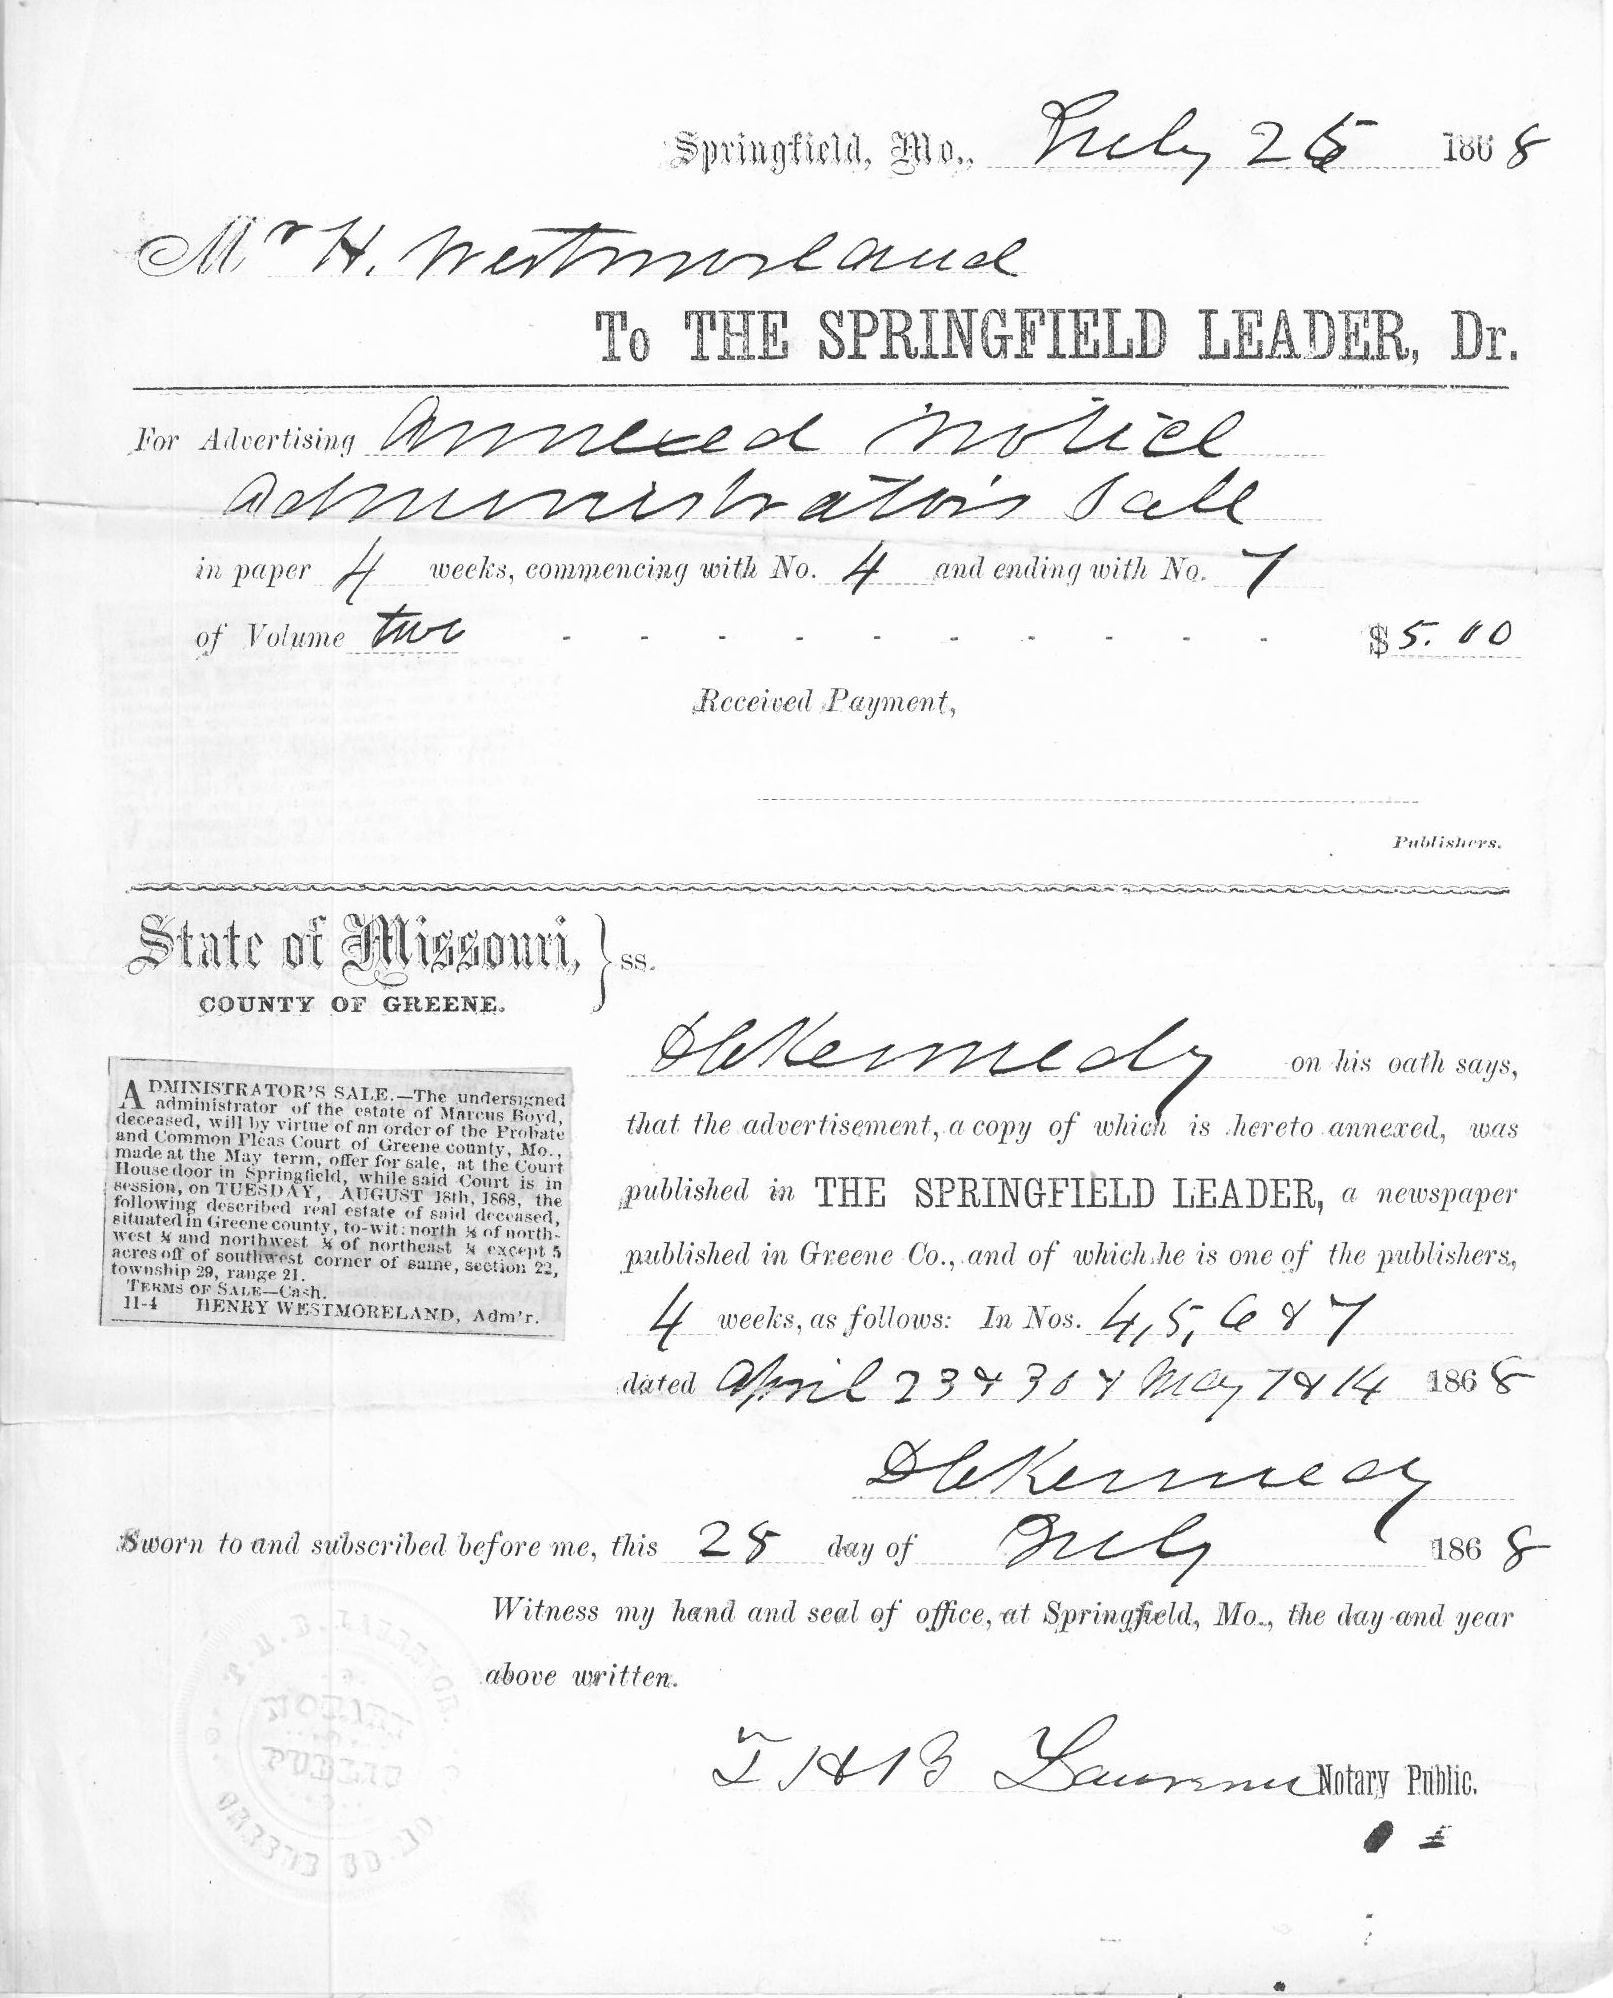 Springfield, Mo., July 25 1868
Mr H. Westmorland
To THE SPRINGFIELD LEADER, Dr.
For Advertising Annexed Notice
Administrators Sale
in paper 4 weeks, commencing with No. 4 and ending with No. 7
of Volume two - - - - - - - - - - $5.00
Received Payment,
Publishers.
State of Missouri, } ss.
COUNTY OF GREENE.
ADMINISTRATOR'S SALE.—The undersigned
administrator of the estate of Marcus Boyd,
deceased, will by virtue of an order of the Probate
and Common Pleas Court of Greene county, Mo.,
made at the May term, offer for sale, at the Court
House door in Springfield, while said Court is in
session, on TUESDAY, AUGUST 18th, 1868, the
following described real estate of said deceased,
situated in Greene county, to-wit: north ½ of north-
west ¼ and northwest ¼ of northeast ¼ except 5
acres off of southwest corner of same, section 22,
township 29, range 21.
TERMS OF SALE—Cash.
11-4 HENRY WESTMORELAND, Adm'r.
D C Kennedy on his oath says,
that the advertisement, a copy of which is hereto annexed, was
published in THE SPRINGFIELD LEADER, a newspaper
published in Greene Co., and of which he is one of the publishers,
4 weeks, as follows: In Nos. 4, 5, 6 & 7
dated April 23 & 30 & May 7 & 14 1868
D C Kennedy
Sworn to and subscribed before me, this 28 day of July 1868
Witness my hand and seal of office, at Springfield, Mo., the day and year
above written.
T H B Lawrence Notary Public.
NOTARY
PUBLIC
GREENE CO. MO.